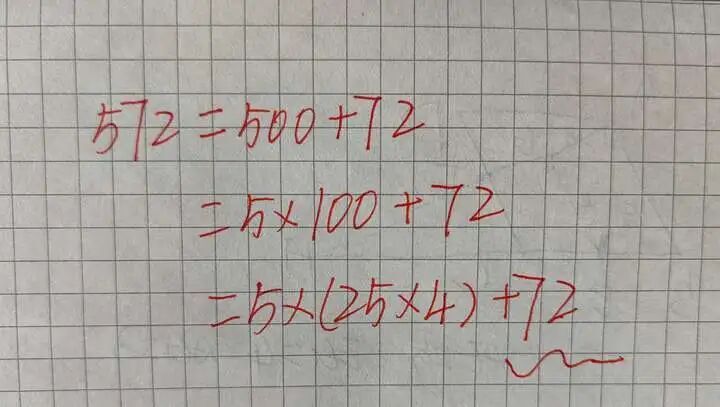 572=500+72
=5×100+72
=5×(25×4)+72